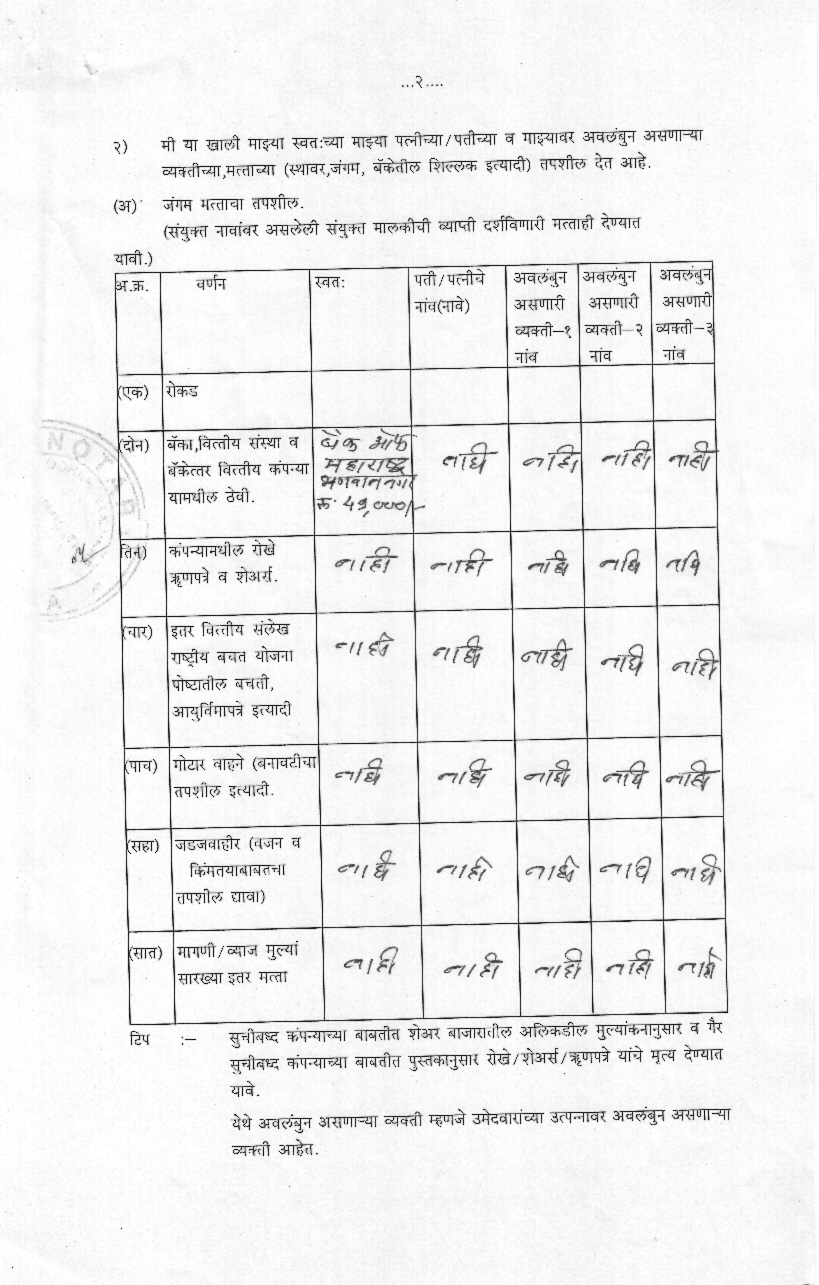 ...२....
२) मी या खाली माझ्या स्वतःच्या माझ्या पत्नीच्या/पतीच्या व माझ्यावर अवलंबुन असणाऱ्या
व्यक्तीच्या,मत्ताच्या (स्थावर,जंगम, बॅकेतील शिल्लक इत्यादी) तपशील देत आहे.
(अ) जंगम मत्ताचा तपशील.
(संयुक्त नावांवर असलेली संयुक्त मालकीची व्याप्ती दर्शविणारी मत्ताही देण्यात
यावी.)
अ.क्र. वर्णन स्वतः पती/पत्नीचे अवलंबुन अवलंबुन अवलंबुन
नांव(नावे) असणारी असणारी असणारी
व्यक्ती–१ व्यक्ती–२ व्यक्ती–३
नांव नांव नांव
(एक) रोकड
(दोन) बॅका,वित्तीय संस्था व बँक ऑफ
बॅकेत्तर वित्तीय कंपन्या महाराष्ट्र नाही नाही नाही नाही
यामधील ठेवी. भगवाननगर
रू. ४१,०००/-
तिन) कंपन्यामधील रोखे नाही नाही नाही नाही नाही
ऋणपत्रे व शेअर्स.
(चार) इतर वित्तीय संलेख नाही नाही नाही नाही नाही
राष्ट्रीय बचत योजना
पोष्टातील बचती,
आयुर्विमापत्रे इत्यादी
(पाच) गोटार वाहने (बनावटीचा नाही नाही नाही नाही नाही
तपशील इत्यादी.
(सहा) जडजवाहीर (वजन व
किंमतयाबाबतचा नाही नाही नाही नाही नाही
तपशील द्यावा)
(सात) मागणी/व्याज मुल्यां नाही नाही नाही नाही नाही
सारख्या इतर मत्ता
टिप :– सुचीबध्द कंपन्याच्या बाबतीत शेअर बाजारातील अलिकडील मुल्यांकनानुसार व गैर
सुचीबध्द कंपन्याच्या बाबतीत पुस्तकानुसार रोखे/शेअर्स/ऋणपत्रे यांचे मृत्य देण्यात
यावे.
येथे अवलंबुन असणाऱ्या व्यक्ती म्हणजे उमेदवारांच्या उत्पन्नावर अवलंबुन असणाऱ्या
व्यक्ती आहेत.
NOTAR